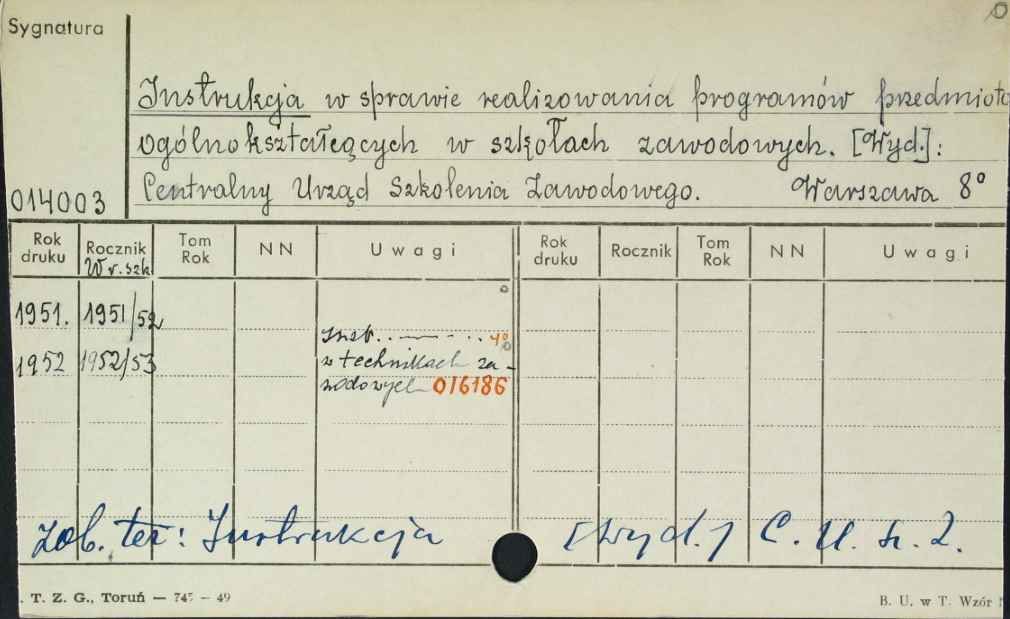 Sygnatura
Instrukcja w sprawie realizowania programów przedmioto
ogólnokształcących w szkołach zawodowych. [Wyd.]:
014003 Centralny Urząd Szkolenia Zawodowego. Warszawa 8°
Rok druku Rocznik W r. szk. Tom Rok NN Uwagi Rok druku Rocznik Tom Rok NN Uwagi
1951. 1951/52
Inst. . . — . . 4°
1952 1952/53 w technikach za-
wodowych 016186
Zob. też: Instrukcja [wyd.] C. U. S. Z.
. T. Z. G., Toruń — 745 — 49 B. U. w T. Wzór